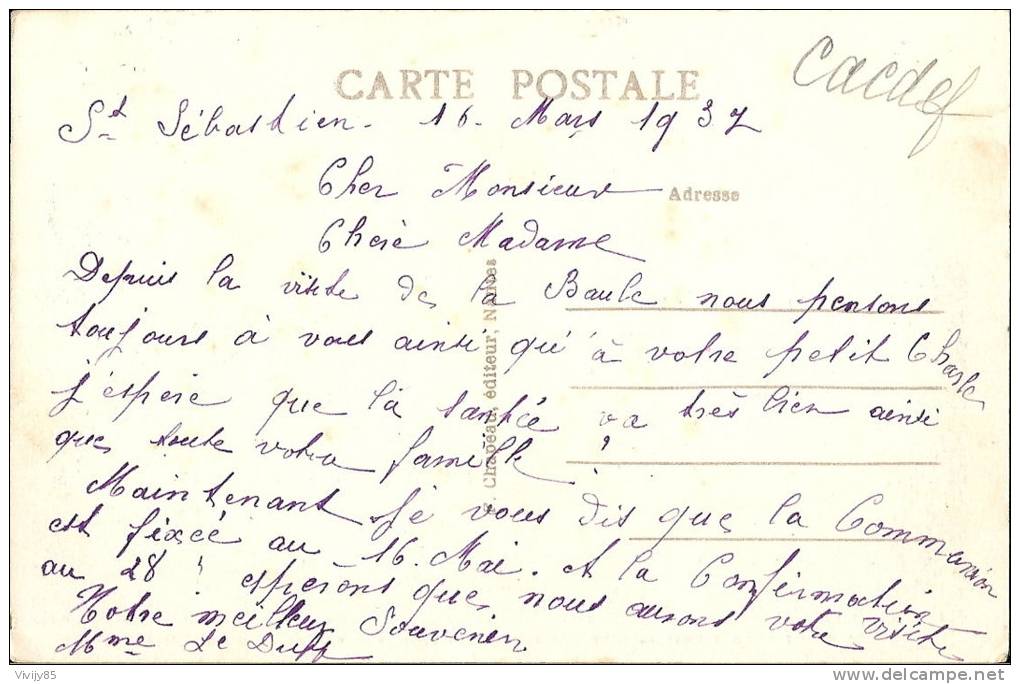 CARTE POSTALE
cacdef
St Sébastien. 16. Mars 1937
Cher Monsieur
Adresse
Cheré Madame
Depuis la visite de la Baule nous pensons
toujours à vous ainsi qu'à votre petit Charle
j'espére que la santée va très bien ainsi
que toute votre famille ?
Maintenant je vous dis que la Communion
est fixée au 16. Mai. et la Confirmation
au 28 " espérons que nous aurons votre visite
Notre meilleur Souvenir
Mme Le Duff
F. Chapeau, éditeur, Nantes
Vivijy85
delcampe.net